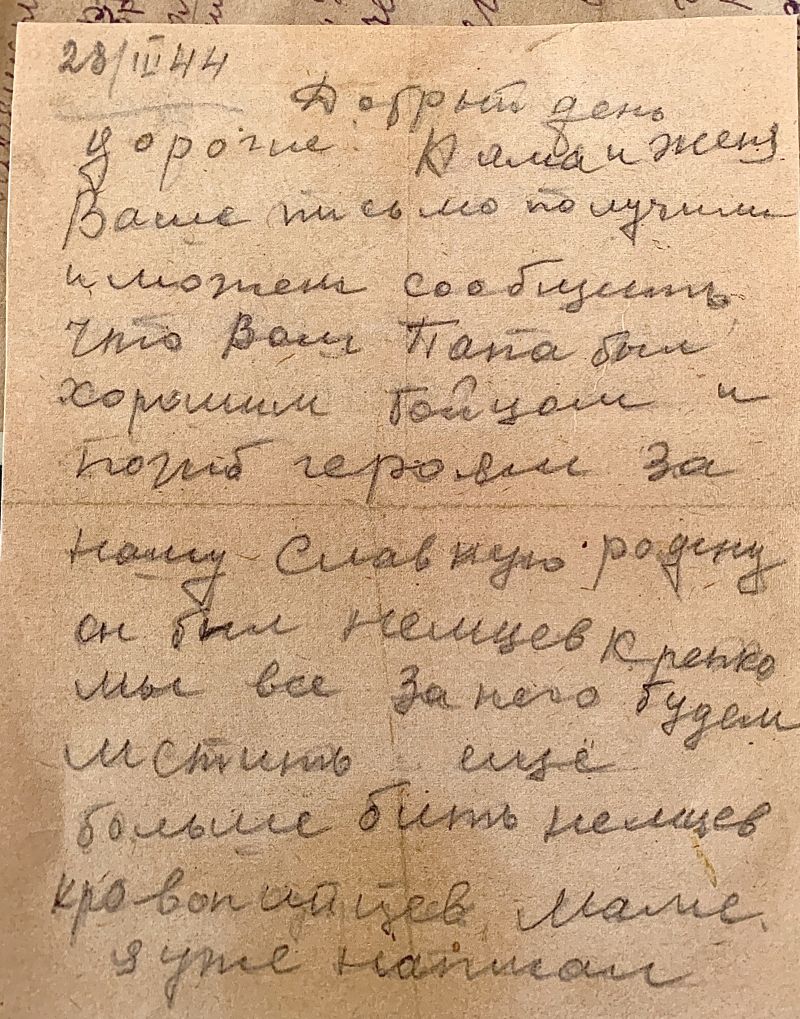 28/III 44
Добрый день
дорогие Дима и Женя
Ваше письмо получили
и можем сообщить,
что Ваш Папа был
хорошим бойцом и
погиб героям за
нашу Славную родину
он бил немцев крепко
мы все за него будем
мстить ещё
больше бить немцев
кровопийцев Маме.
я уже написал